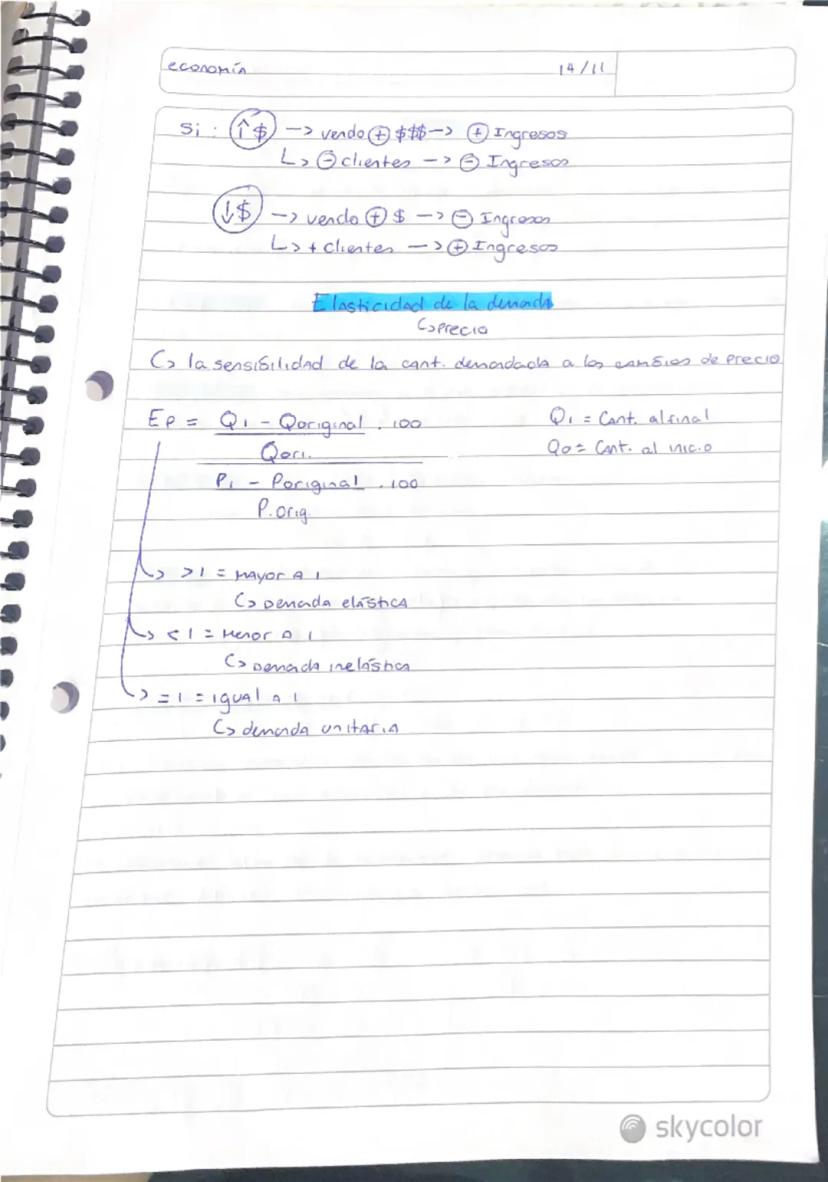 economía 14/11
Si: ↑$ -> vendo + $$$ -> + Ingresos
↳ - clientes -> - Ingresos
↓$ -> vendo + $ -> - Ingresos
↳ + clientes -> + Ingresos
Elasticidad de la demanda
↳ precio
↳ la sensibilidad de la cant. demandada a los cambios de precio
Ep = Q1 - Qoriginal . 100
Qori.
P1 - Poriginal . 100
P.orig.
Q1 = Cant. al final
Q0 = Cant. al inicio
↳ >1 = mayor a 1
↳ Demanda elástica
↳ <1 = Menor a 1
↳ Demanda inelástica
↳ =1 = igual a 1
↳ demanda unitaria
skycolor